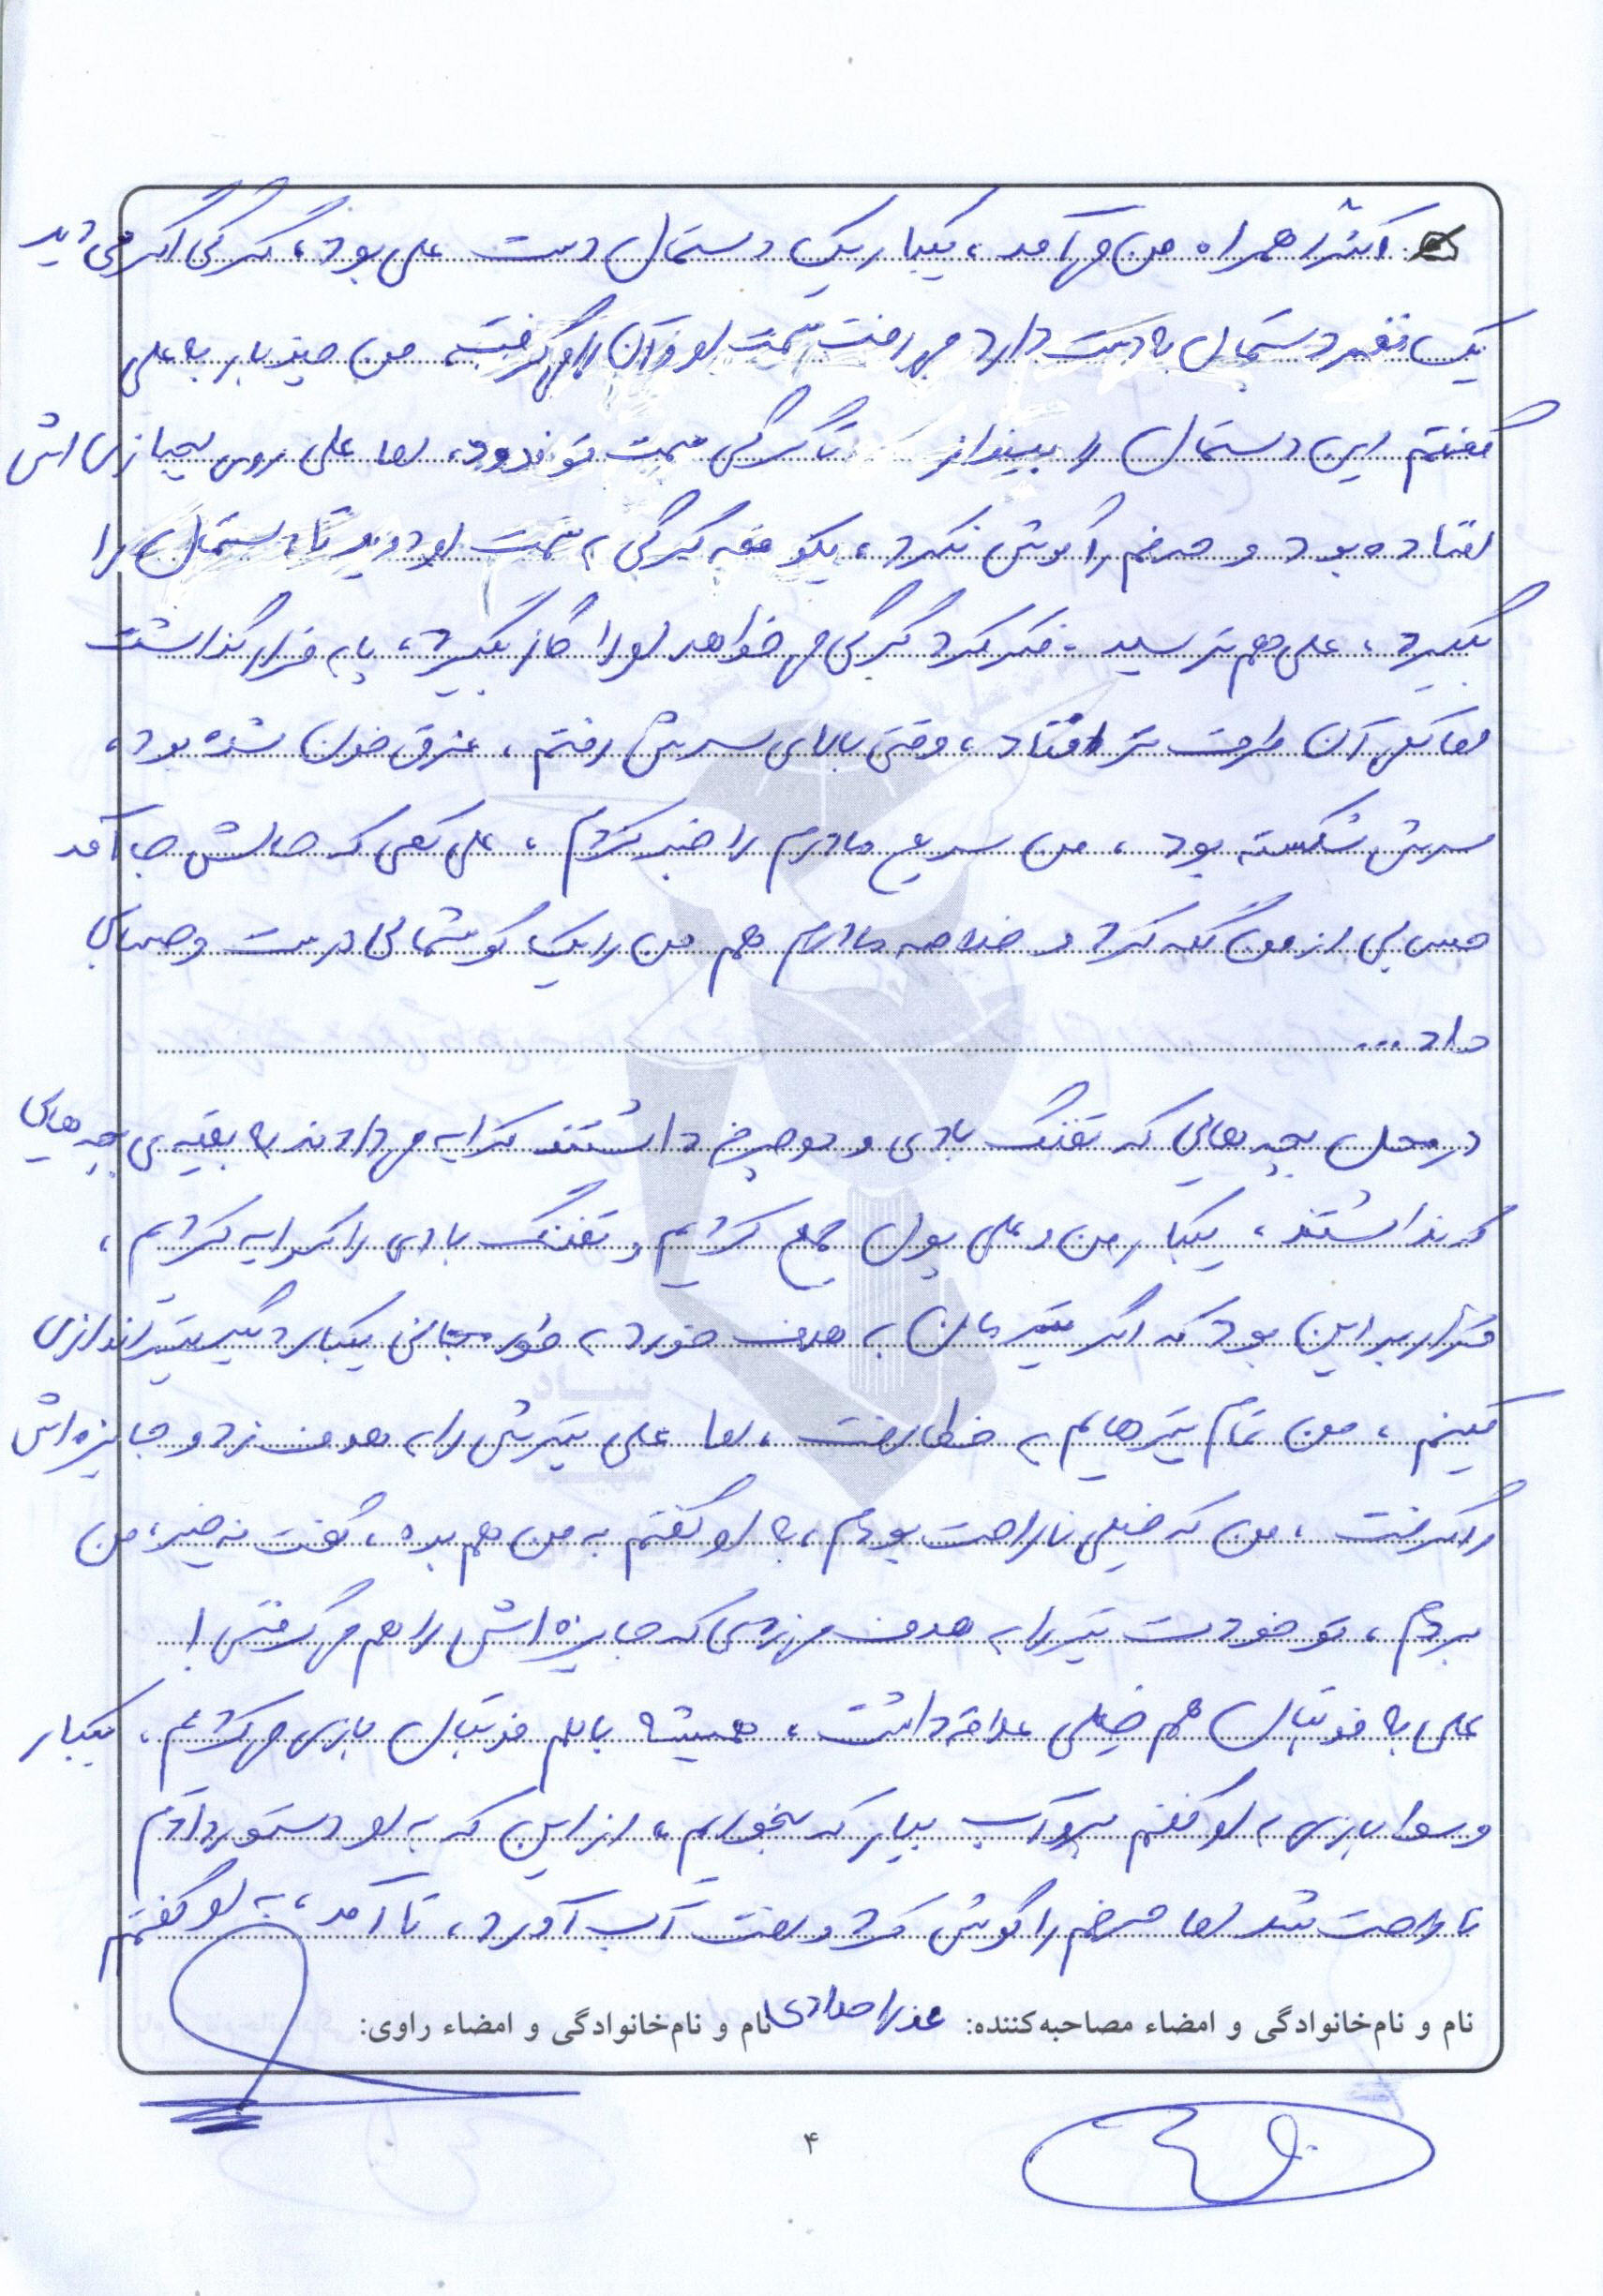 اکثراً همراه من می‌آمد، یکبار یک دستمال دست علی بود، گرگی اگر می دید
یک نفر دستمال به دست دارد می رفت سمت او و آن را می گرفت، من چند بار به علی
گفتم این دستمال را بینداز تا گرگی سمت تو ندود، اما علی روی لجبازی اش
افتاده بود و حرفم را گوش نکرد، یکدفعه گرگی به سمت او دوید تا دستمال را
بگیرد، علی هم ترسید، فکر کرد گرگی می خواهد او را گاز بگیرد، پا به فرار گذاشت
آن طرف تر افتاد، وقتی بالای سرش رفتم، غرق خون شده بود،
سرش شکسته بود، من سریع مادرم را خبر کردم، علی کمی که حالش جا آمد
حسابی از من گله کرد و خلاصه مادرم هم من را یک گوشمالی درست و حسابی
داد ...
در محل بچه هایی که تفنگ بادی و دوچرخه داشتند کرایه می دادند به بقیه ی بچه هایی
که نداشتند، یکبار من و علی پول جمع کردیم و تفنگ بادی را کرایه کردیم،
قرار بر این بود که اگر تیرمان به هدف خورد به طور مجانی یکبار دیگر تیراندازی
کنیم، من تمام تیرهایم به خطا رفت، اما علی تیرش را به هدف زد و جایزه اش
را گرفت، من که خیلی ناراحت بودم، به او گفتم به من هم بده، گفت نه خیر، من
بردم، تو خودت تیر را به هدف می زدی که جایزه اش را هم می گرفتی!
علی به فوتبال هم خیلی علاقه داشت، همیشه باهم فوتبال بازی می کردیم، یکبار
وسط بازی به او گفتم برو آب بیار که بخوریم، از این که به او دستور دادم
ناراحت شد اما حرفم را گوش کرد و رفت آب آورد، تا آمد، به او گفتم
نام و نام‌خانوادگی و امضاء مصاحبه‌کننده: نام و نام‌خانوادگی و امضاء راوی:
۴